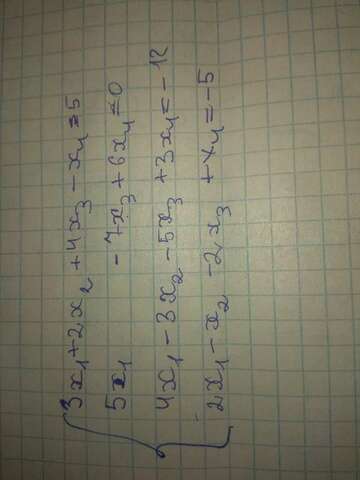 3x₁+2x₂+4x₃-x₄=5
5x₁ -7x₃+6x₄=0
4x₁-3x₂-5x₃+3x₄=-12
2x₁-x₂-2x₃+x₄=-5